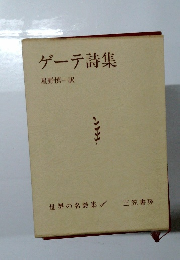 ゲーテ詩集
訳
世界の名詩集
三笠書房